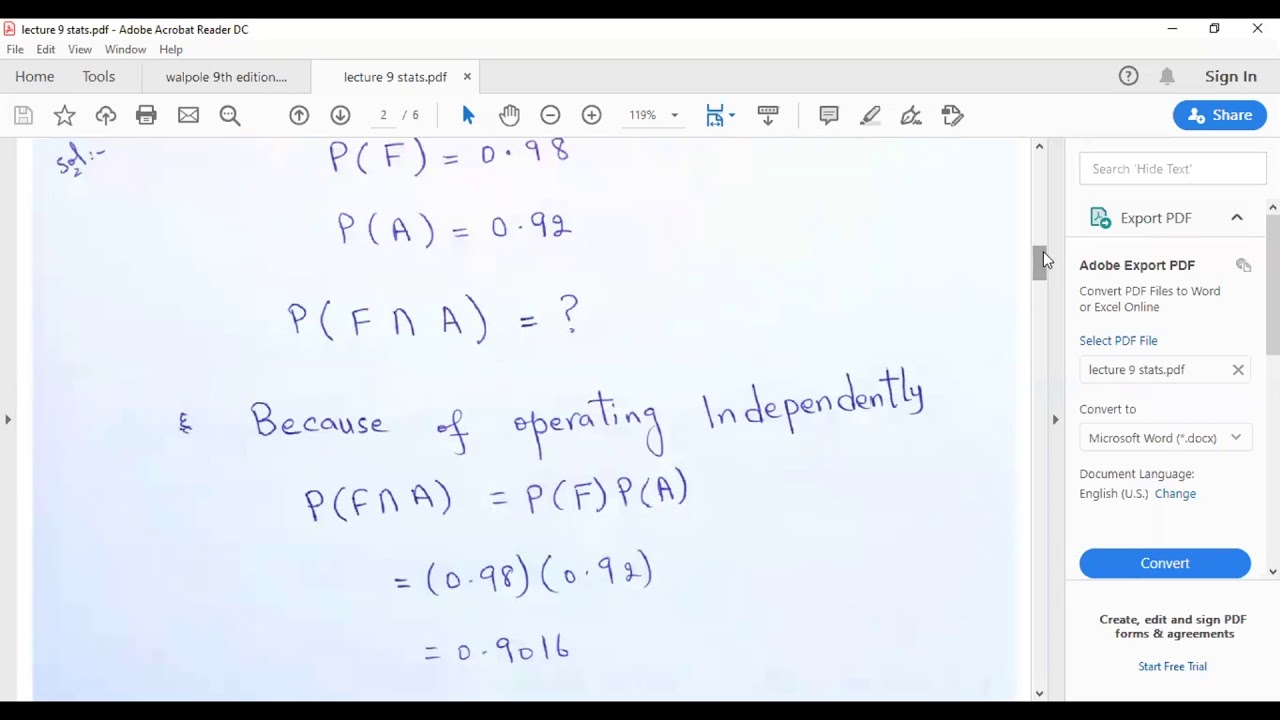 lecture 9 stats.pdf - Adobe Acrobat Reader DC
File Edit View Window Help
Home Tools walpole 9th edition.... lecture 9 stats.pdf × Sign In
2 / 6 119% Share
Sol:-
P(F) = 0.98
P(A) = 0.92
P(F ∩ A) = ?
& Because of operating Independently
P(F∩A) = P(F)P(A)
= (0.98)(0.92)
= 0.9016
Search 'Hide Text'
Export PDF
Adobe Export PDF
Convert PDF Files to Word
or Excel Online
Select PDF File
lecture 9 stats.pdf
Convert to
Microsoft Word (*.docx)
Document Language:
English (U.S.) Change
Convert
Create, edit and sign PDF
forms & agreements
Start Free Trial